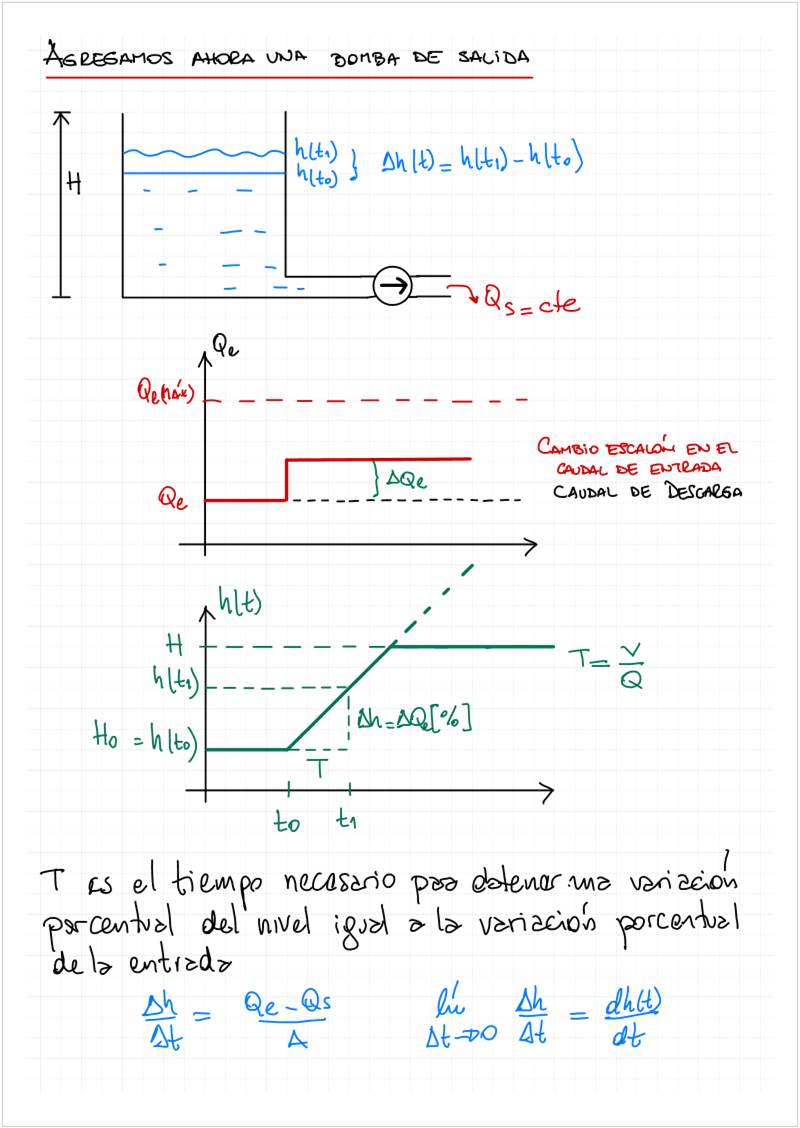 AGREGAMOS AHORA UNA BOMBA DE SALIDA
H
h(t₁)
h(t₀)
} Δh(t) = h(t₁) - h(t₀)
Qs = cte
Qe
Qe(máx)
CAMBIO ESCALÓN EN EL
CAUDAL DE ENTRADA
CAUDAL DE DESCARGA
Qe
} ΔQe
h(t)
H
T = V/Q
h(t₁)
Δh = ΔQe[%]
H₀ = h(t₀)
T
t₀ t₁
T es el tiempo necesario para obtener una variación
porcentual del nivel igual a la variación porcentual
de la entrada
Δh/Δt = (Qe - Qs)/A lím Δt→0 Δh/Δt = dh(t)/dt